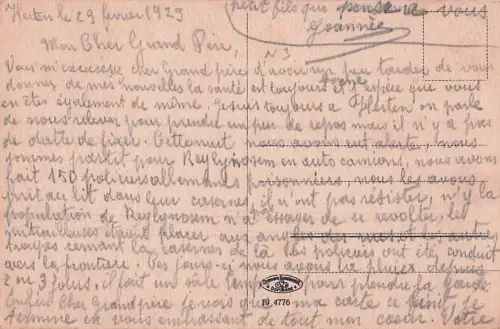 Herten le 29 février 1923
petit fils qui pense a vous
Joannée
Mon Cher Grand Père,
N 3
Vous m'excuserez cher Grand père d'avoir un peu tarder de vous
donner de mes nouvelles la santé est toujours bonne j'espère que vous
en êtes également de même. je suis toujours a Herten on parle
de nous relever pour prendre un peu de repos mais il n'y a pas
de datte de fixer. Cette nuit nous avons eut alerte, nous
sommes partit pour Reylynosem en auto camions, nous avons
fait 150 policiers allemands prisonniers, nous les avons
prit au lit dans leur casernes, il n'ont pas résister, n'y la
population de Reylynosem n'a essayer de se revolter. les
mitrailleuses étaient placer aux des rues et les autres
troupes cernant la casernes de là les policiers ont été conduit
vers la frontière. Ces jours-ci nous avons la pluie depuis
2 ou 3 jours, il fait un sale temps pour prendre la garde.
Cher Grand père je vois que ma carte ce je
termine en vous embrassant de tout mon coeur. Votre
19 4776